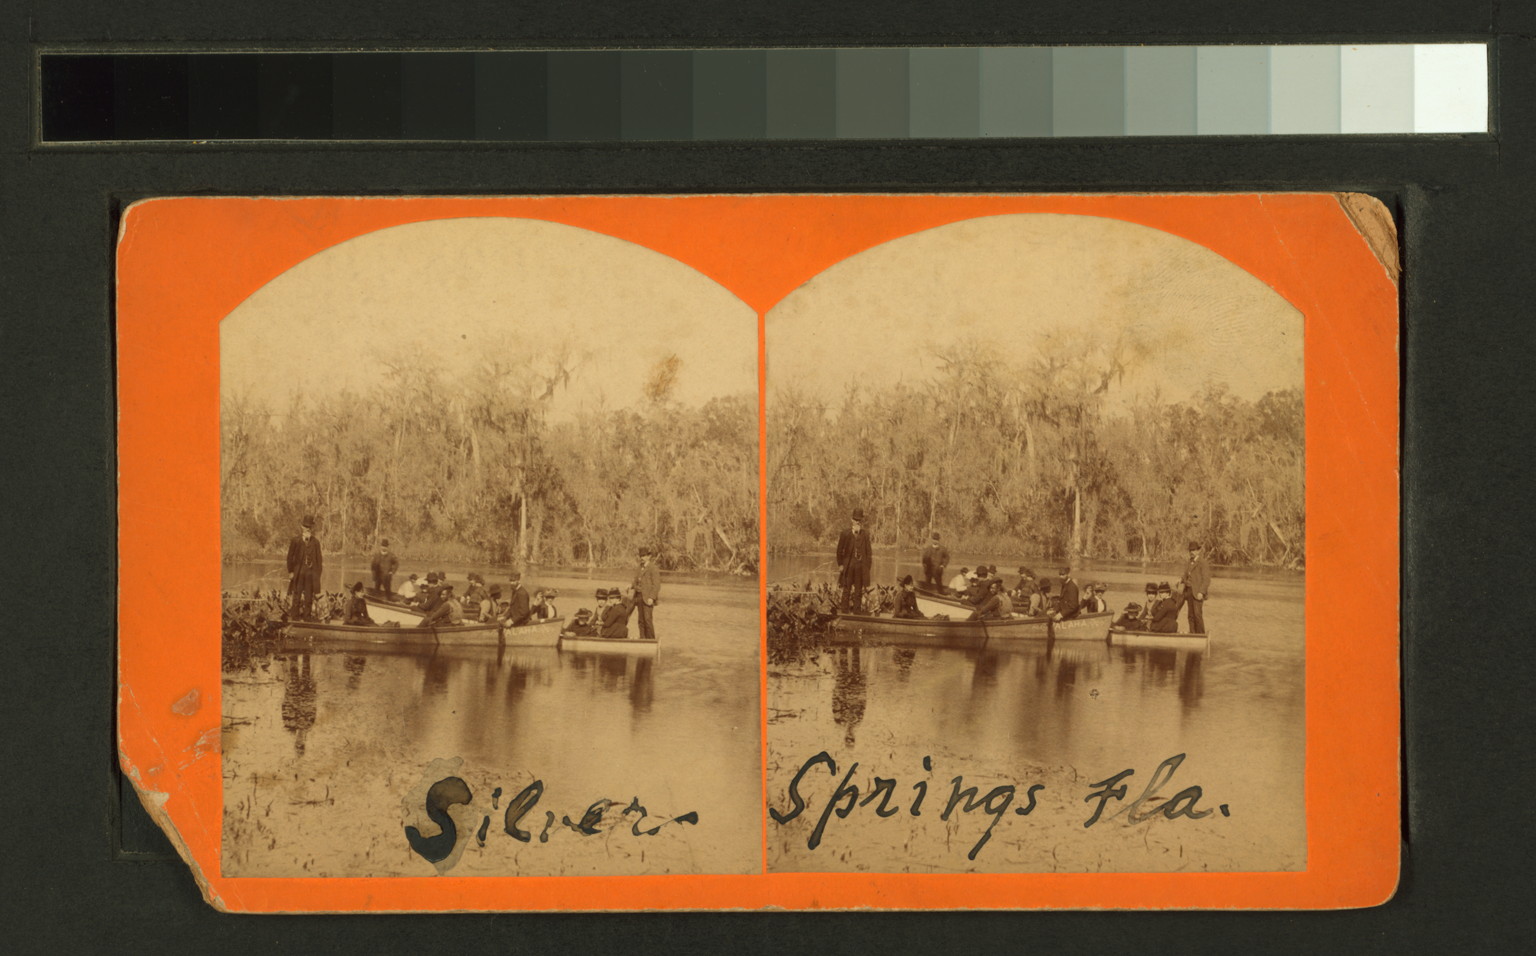 Silver Springs Fla.